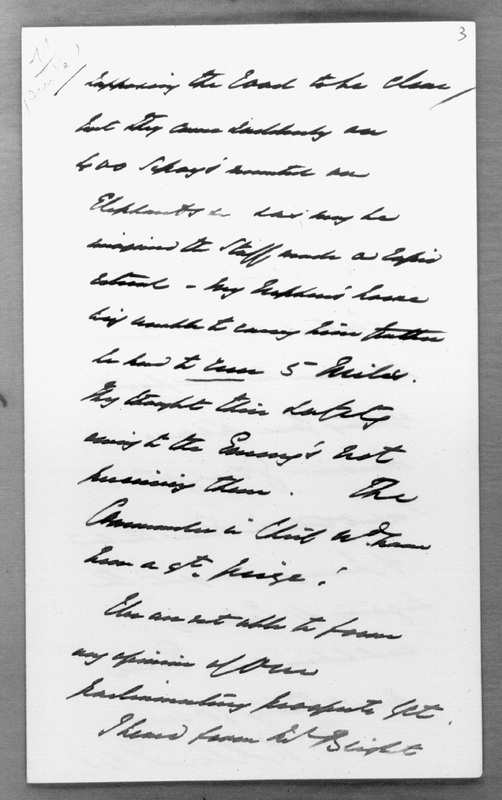 3
supposing the Road to be clear
but they came suddenly on
600 Sepoys mounted on
Elephants as may be
imagined the Staff made a rapid
retreat - My Nephew's horse
being unable to carry him further
he had to run 5 Miles.
They thought their safety
owing to the Enemy's not
perceiving them. The
Commander in Chief wd. have
been a gt. prize!
We are not able to form
any opinion of our
Parliamentary prospects yet.
I heard from Mr. Bright